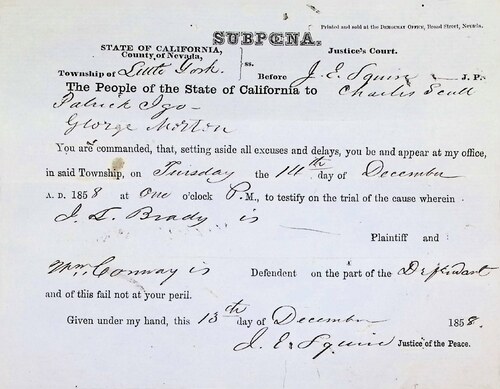 Printed and sold at the DEMOCRAT OFFICE, Broad Street, Nevada.
SUBPŒNA.
STATE OF CALIFORNIA,
County of Nevada, ss. Justice's Court.
Township of Little York. Before J. E. Squire J. P.
The People of the State of California to Charles Scull
Patrick Igo
George Morton
You are commanded, that, setting aside all excuses and delays, you be and appear at my office,
in said Township, on Tuesday the 14th day of December
A. D. 1858 at One o'clock P. M., to testify on the trial of the cause wherein
J. L. Brady is
Plaintiff and
Wm. Conway is Defendent on the part of the Defendant
and of this fail not at your peril.
Given under my hand, this 13th day of December 1858.
J. E. Squire Justice of the Peace.